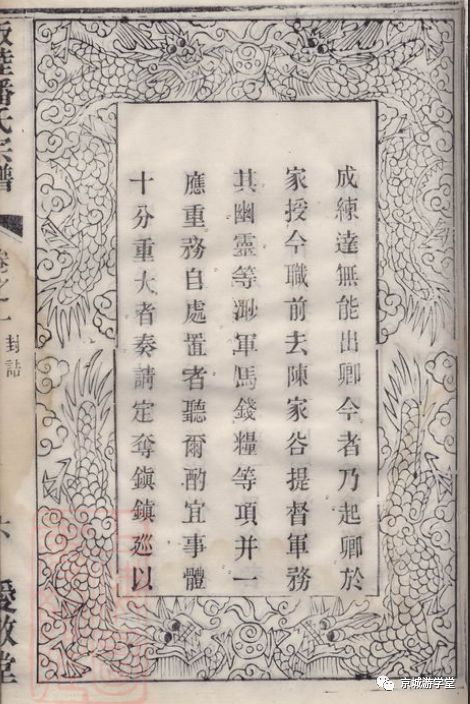 成練達無能出卿今者乃起卿於
家授今職前去陳家谷提督軍務
其幽靈等瀞軍馬錢糧等項并一
應重務自處置者聽爾酌宜事體
十分重大者奏請定奪鎮鎮巡以
潘氏宗譜
卷之一
封誥
六
愛敬堂
京城游学堂